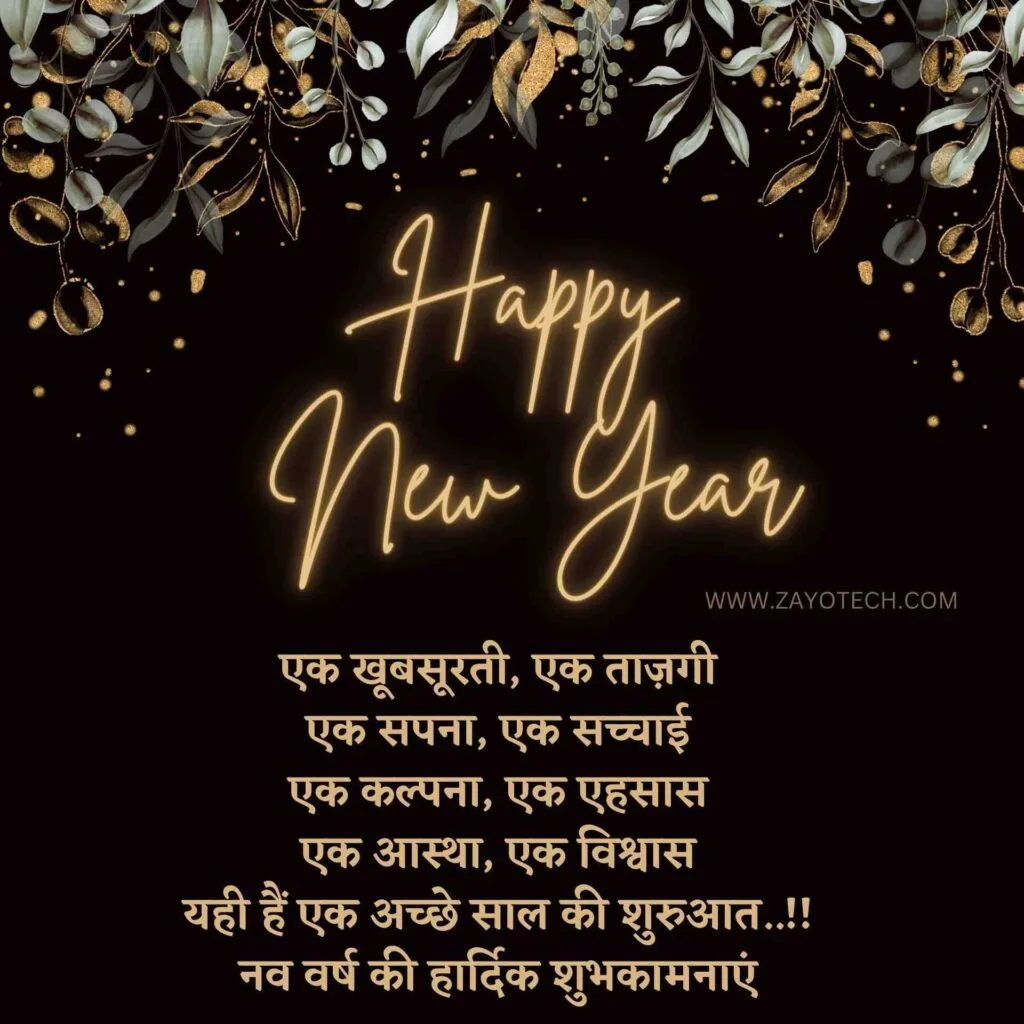 Happy
New Year
WWW.ZAYOTECH.COM
एक खूबसूरती, एक ताज़गी
एक सपना, एक सच्चाई
एक कल्पना, एक एहसास
एक आस्था, एक विश्वास
यही हैं एक अच्छे साल की शुरुआत..!!
नव वर्ष की हार्दिक शुभकामनाएं